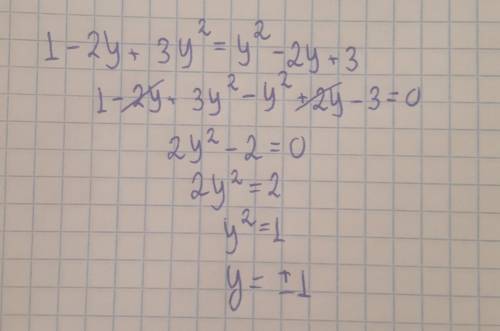 1 - 2y + 3y² = y² - 2y + 3
1 - 2y + 3y² - y² + 2y - 3 = 0
2y² - 2 = 0
2y² = 2
y² = 1
y = ±1